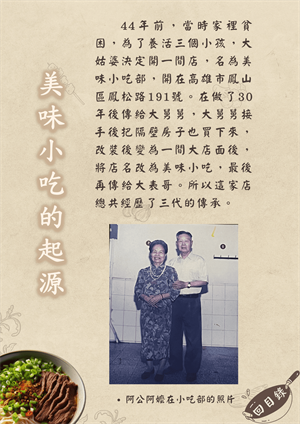 美味小吃的起源
44年前，當時家裡貧
困，為了養活三個小孩，大
姑婆決定開一間店，名為美
味小吃部，開在高雄市鳳山
區鳳松路191號。在做了30
年後傳給大舅舅，大舅舅接
手後把隔壁房子也買下來，
改裝後變為一間大店面後，
將店名改為美味小吃，最後
再傳給大表哥。所以這家店
總共經歷了三代的傳承。
•阿公阿嬤在小吃部的照片
回目錄